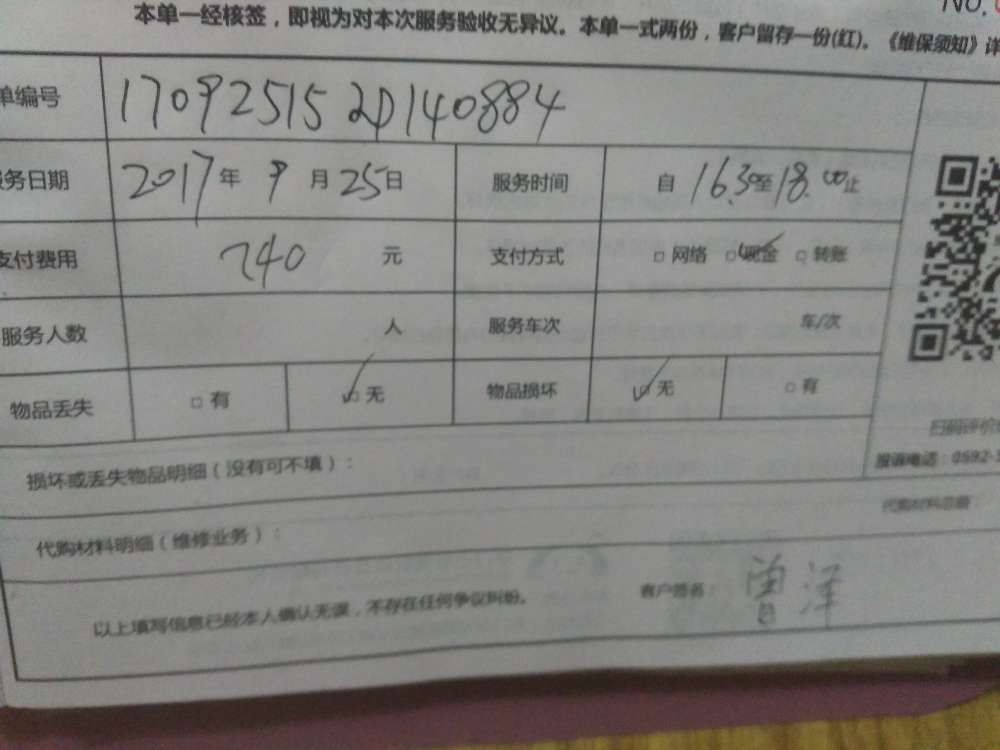 NO.
本单一经核签，即视为对本次服务验收无异议。本单一式两份，客户留存一份(红)。《维保须知》详
单编号 17092515 20140884
服务日期 2017年 9月 25日 服务时间 自 16.30至18.00止
支付费用 240 元 支付方式 □ 网络 ☑ 现金 □ 转账
服务人数 人 服务车次 车/次
物品丢失 □ 有 ☑ 无 物品损坏 ☑ 无 □ 有
扫码评价
服诉电话：0592-
损坏或丢失物品明细（没有可不填）：
代购材料明细（维修业务）： 代购材料总额
以上填写信息已经本人确认无误，不存在任何争议纠纷。 客户签名： 曾泽